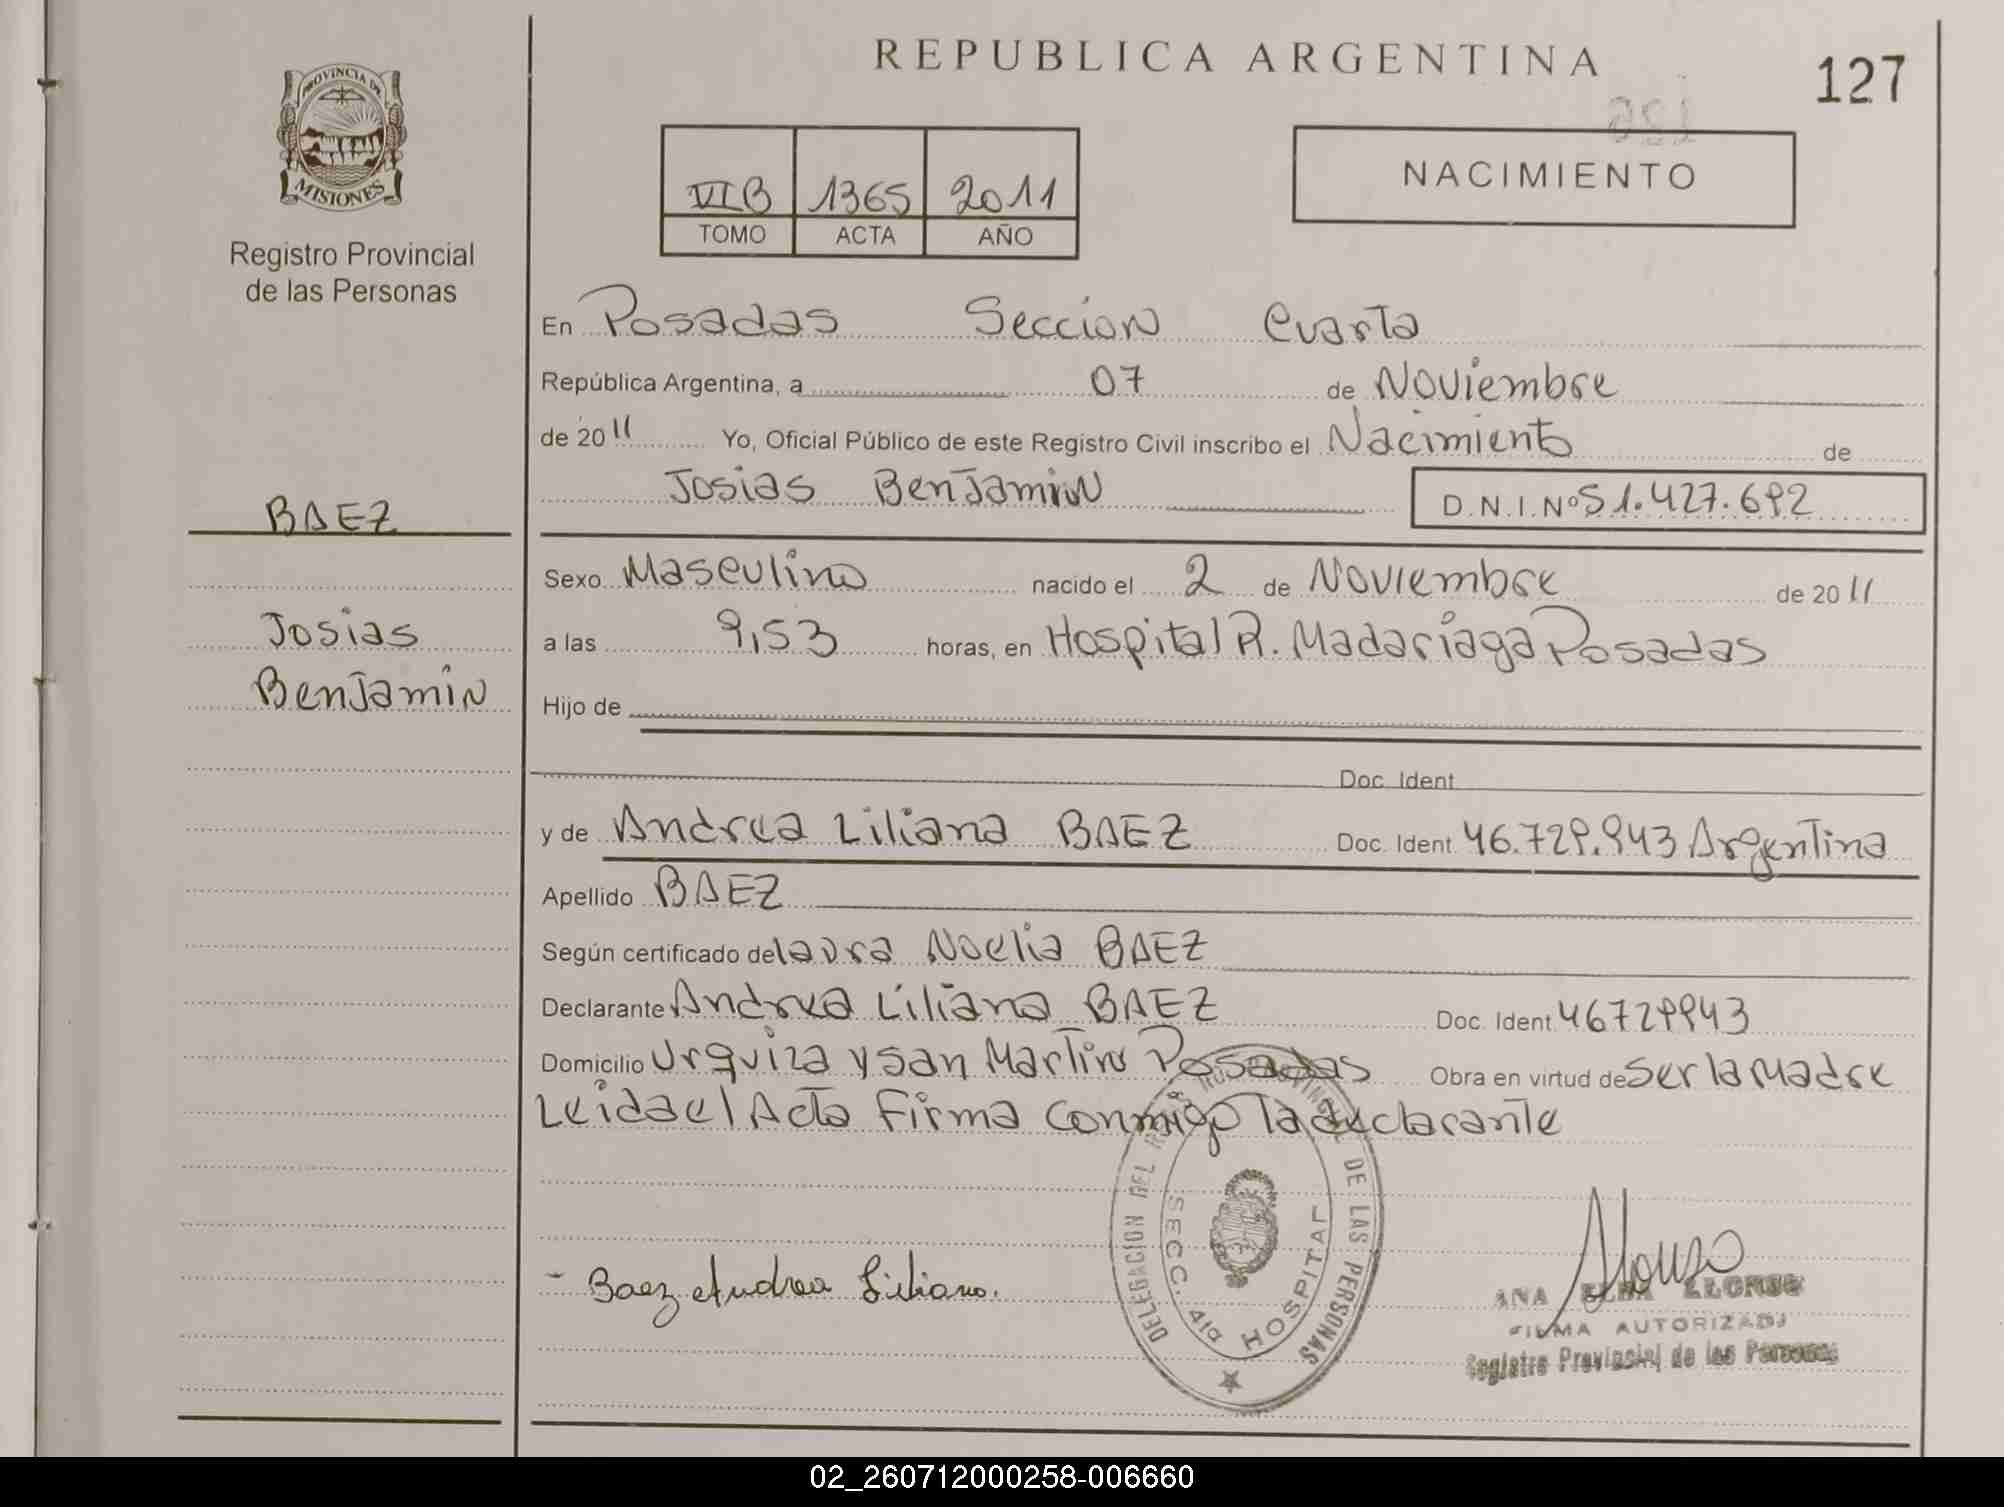 REPUBLICA ARGENTINA
127
126
PROVINCIA DE
MISIONES
Registro Provincial
de las Personas
VI B 1365 2011
TOMO ACTA AÑO
NACIMIENTO
En Posadas Seccion Cuarta
República Argentina, a 07 de Noviembre
de 2011 Yo, Oficial Público de este Registro Civil inscribo el Nacimiento de
Josias Benjamin D.N.I.Nº 51.427.692
BAEZ
Josias
Benjamin
Sexo Masculino nacido el 2 de Noviembre de 2011
a las 9,53 horas, en Hospital R. Madariaga Posadas
Hijo de
Doc. Ident
y de Andrea Liliana BAEZ Doc. Ident 46.729.943 Argentina
Apellido BAEZ
Según certificado de laura Noelia BAEZ
Declarante Andrea Liliana BAEZ Doc. Ident 46729943
Domicilio Urquiza y San Martin Posadas Obra en virtud de Ser la Madre
Leida el Acta Firma Conmigo la declarante
DELEGACION DEL REGISTRO PROVINCIAL DE LAS PERSONAS
SECC. 4ta HOSPITAL
Baez Andrea Liliana.
Alonso
ANA ELBA ALONSO
FIRMA AUTORIZADA
Registro Provincial de las Personas
02_260712000258-006660